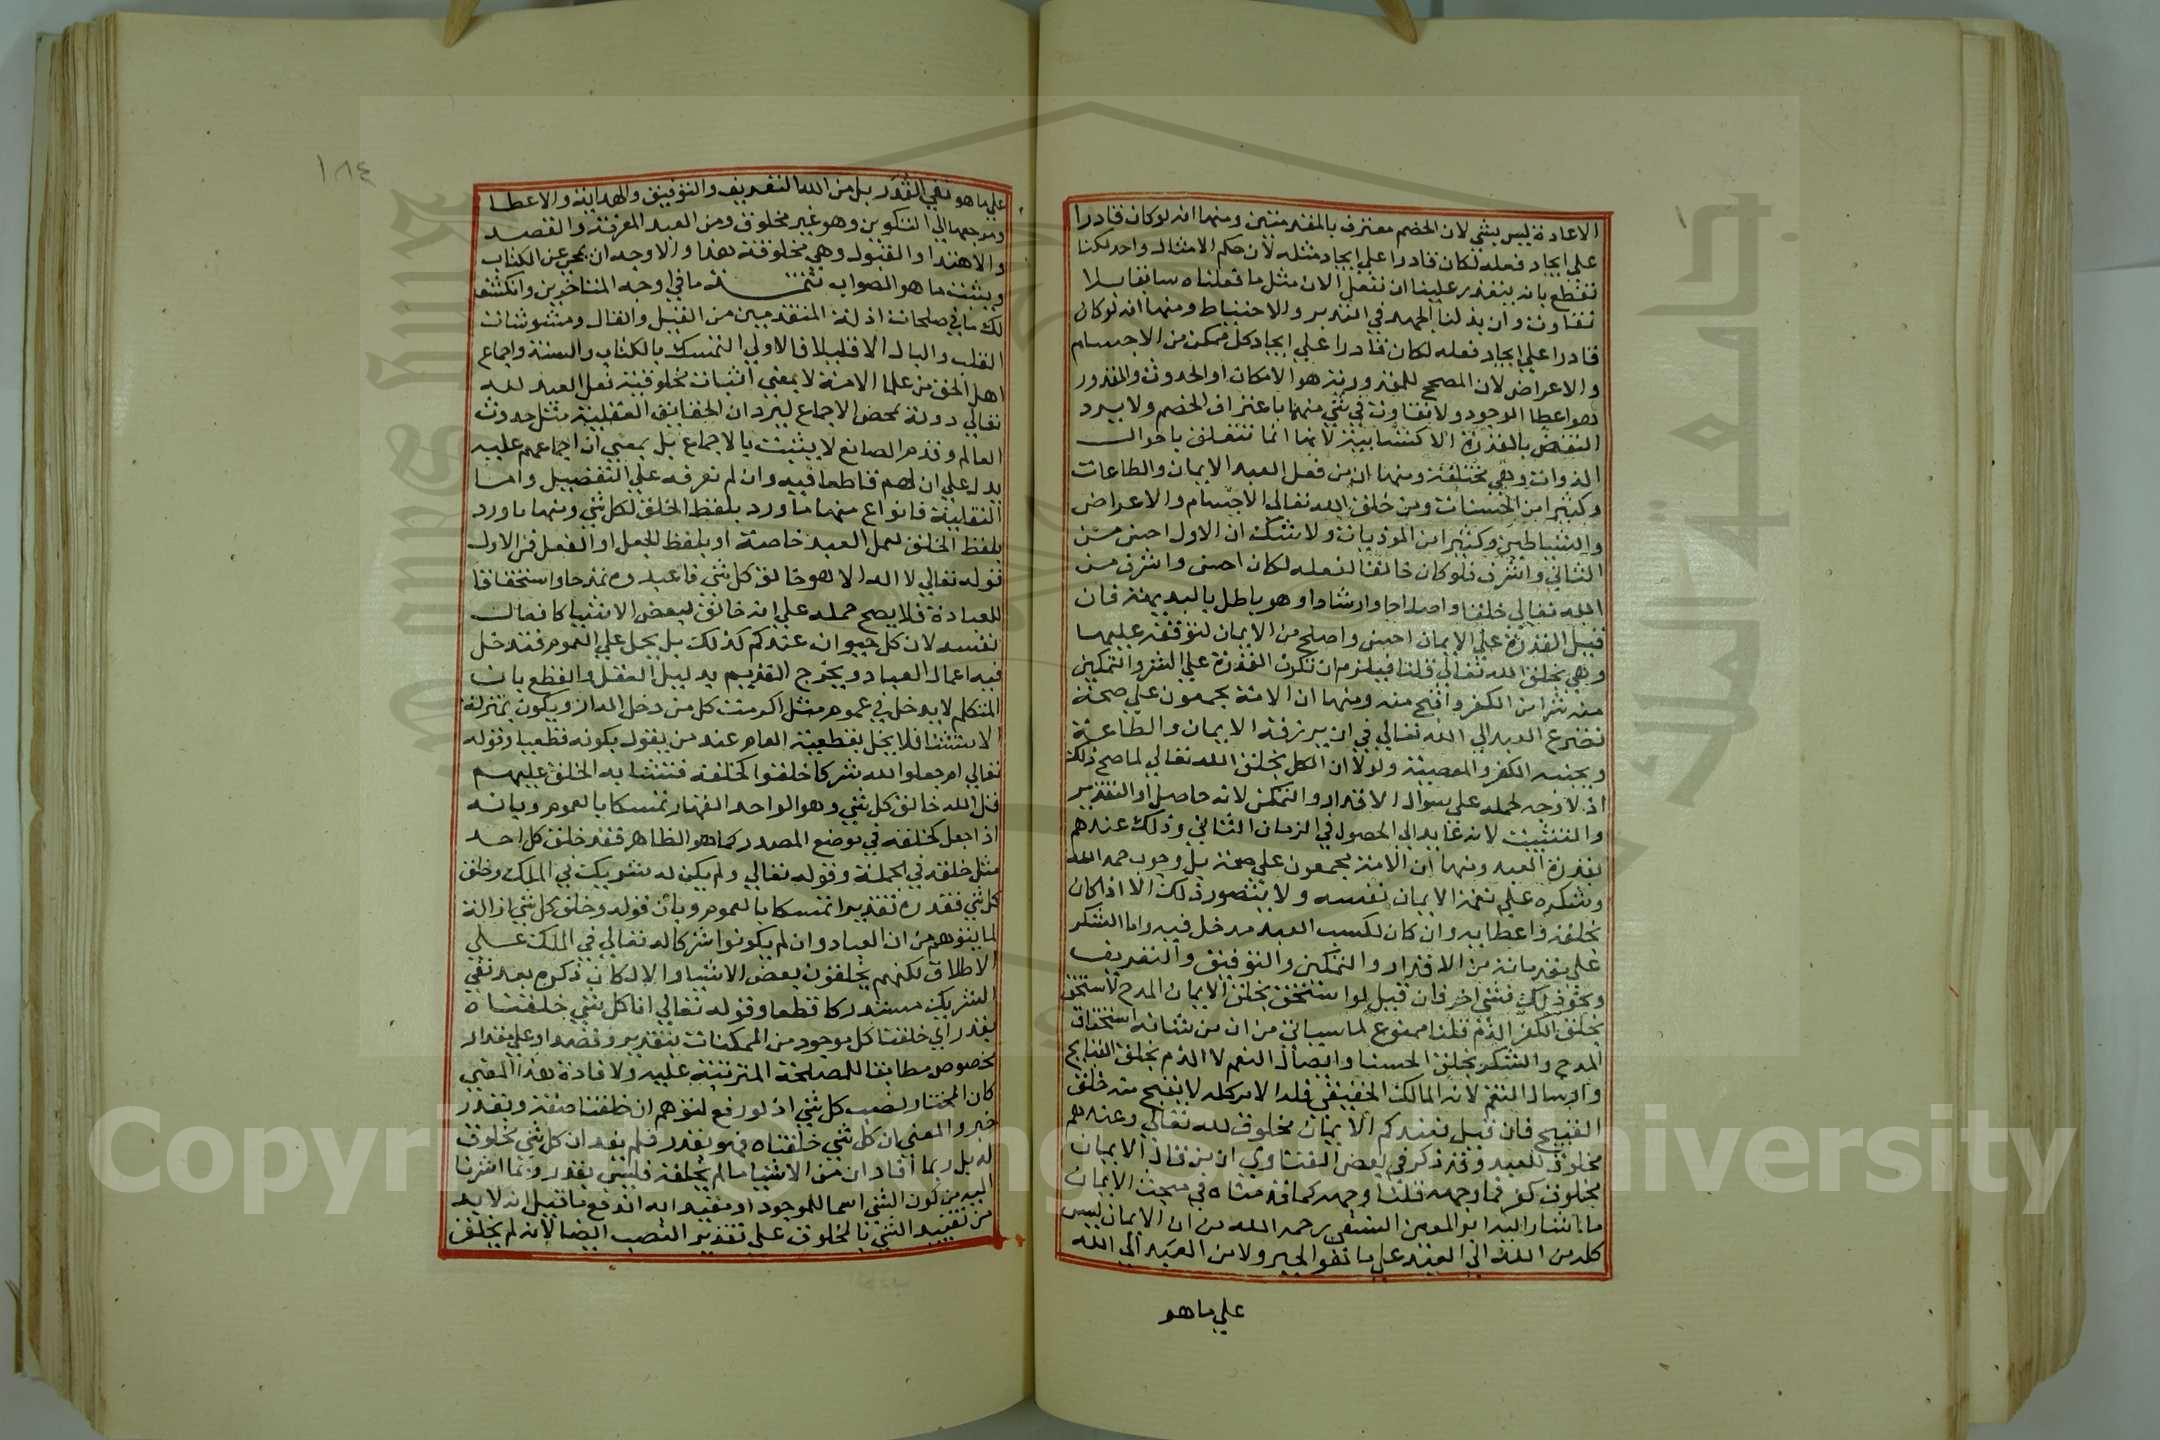 الاعادة ليس بشي لان الخصم معترف بالمقدمتين ومنها انه لوكان قادرا
علي ايجاد فعله لكان قادرا علي ايجاد مثله لان حكم الامثال واحد لكنا
نقطع بانه يتعذر علينا ان نفعل الان مثل ما فعلناه سابقا بلا
تفاوت وان بذلنا الجهد في التدبر والاحتياط ومنها انه لوكان
قادرا علي ايجاد فعله لكان قادرا علي ايجاد كل ممكن من الاجسام
والاعراض لان المصحح للمقدورية هو الامكان او الحدوث والمقدور
هو اعطا الوجود ولا تفاوت في شي منهما باعتراف الخصم ولا يرد
النقض بالقدرة الاكتسابية لانها انما تتعلق باحوال
الذوات وهي مختلفة ومنها ان من فعل العبد الايمان والطاعات
وكثيرا من الحسنات ومن خلق الله تعالي الاجسام والاعراض
والشياطين وكثيرا من الموذيات ولا شك ان الاول احسن من
الثاني واشرف فلو كان خالقا لفعله لكان احسن واشرف من
الله تعالي خلقا واصلاحا وارشادا وهو باطل بالبديهة فان
قيل القدرة علي الايمان احسن واصلح من الايمان لتوقفه عليها
وهي بخلق الله تعالي قلنا فيلزم ان تكون القدرة علي الشر والتمكين
منه شرا من الكفر واقبح منه ومنها ان الامة مجمعون علي صحة
تضرع العبد الي الله تعالي في ان يرزقه الايمان والطاعة
ويجنبه الكفر والمعصية ولولا ان الكل بخلق الله تعالي لما صح ذلك
اذ لا وجه لحمله علي سوال الاقدار والتمكين لانه حاصل او التقدير
والتثبيت لانه عايد الي الحصول في الزمان الثاني وذلك عندهم
بقدرة العبد ومنها ان الامة مجمعون علي صحة بل وجوب حمد الله
وشكره علي نعمة الايمان نفسه ولا يتصور ذلك الا اذا كان
بخلقه واعطايه وان كان لكسب العبد مدخل فيه واما الشكر
علي مقدماته من الاقدار والتمكين والتوفيق والتعريف
ونحو ذلك فشي اخر فان قيل لو استحق بخلق الايمان المدح لاستحق
بخلق الكفر الذم قلنا ممنوع لما سياتي من ان من شانه استحقاق
المدح والشكر بخلق الحسنا وايصال النعم لا الذم بخلق القبايح
وارسال النقم لانه المالك الحقيقي فله الامر كله لا يقبح منه خلق
القبيح فان قيل فعندكم الايمان مخلوق لله تعالي وعندهم
مخلوق للعبد وقد ذكر في بعض الفتاوي ان من قال الايمان
مخلوق كفر فما وجهه قلنا وجهه كما قدمناه في مبحث الايمان
ما اشار اليه ابو المعين النسفي رحمه الله من ان الايمان ليس
كله من الله الي العبد علي ما هو الجبر ولا من العبد الي الله
علي ما هو
١٨٤
علي ما هو نفي القدر بل من الله التعريف والتوفيق والهداية والاعطا
ومرجعها الي التكوين وهو غير مخلوق ومن العبد المعرفة والقصد
والاهتدا والقبول وهي مخلوقة هذا والاوجه ان يمحي عن الكتاب
ويثبت ما هو الصواب تتمة ما في اوجه المتاخرين وانكشف
لك ما في صلحات ادلة المتقدمين من القيل والقال ومشوشات
القلب والبال الا قليلا فالاولي التمسك بالكتاب والسنة واجماع
اهل الحق من علما الامة لا بمعني اثبات مخلوقية فعل العبد لله
تعالي دونه بمحض الاجماع ليرد ان الحقايق العقلية مثل حدوث
العالم وقدم الصانع لا يثبت بالاجماع بل بمعني ان اجماعهم عليه
يدل علي ان لهم قاطعا فيه وان لم نعرفه علي التفصيل واما
النقلية فانواع منها ما ورد بلفظ الخلق لكل شي ومنها ما ورد
بلفظ الخلق لعمل العبد خاصة او بلفظ الجعل او الفعل فمن الاول
قوله تعالي لا اله الا هو خالق كل شي فاعبدوه تمدحا واستحقاقا
للعبادة فلا يصح حمله علي انه خالق لبعض الاشيا كافعال
نفسه لان كل حيوان عندكم كذلك بل يحمل علي العموم فتدخل
فيه اعمال العباد ويخرج القديم بدليل العقل والقطع بان
المتكلم لا يدخل في عموم مثل اكرمت كل من دخل الدار ويكون بمنزلة
الاستثنا فلا يخل بقطعية العام عند من يقول بكونه قطعيا وقوله
تعالي ام جعلوا لله شركا خلقوا كخلقه فتشابه الخلق عليهم
قل الله خالق كل شي وهو الواحد القهار تمسكا بالعموم وبانه
اذا جعل كخلقه في موضع المصدر كما هو الظاهر فقد خلق كل احد
مثل خلقه في الجملة وقوله تعالي ولم يكن له شريك في الملك وخلق
كل شي فقدره تقديرا تمسكا بالعموم وبان قوله وخلق كل شي ازالة
لما يتوهم من ان العباد وان لم يكونوا شركا له تعالي في الملك علي
الاطلاق لكنهم يخلقون بعض الاشيا والا لكان ذكره بعد نفي
الشريك مستدركا قطعا وقوله تعالي انا كل شي خلقناه
بقدر اي خلقنا كل موجود من الممكنات بتقدير وقصد او علي مقدار
مخصوص مطابقا للمصلحة المترتبة عليه ولافادة هذا المعني
كان المختار نصب كل شي اذ لو رفع لتوهم ان خلقنا صفة وبقدر
خبر والمعني ان كل شي خلقناه فهو بقدر فلم يفد ان كل شي مخلوق
له بل ربما افاد ان من الاشيا ما لم يخلقه فليس بقدر وبما اشرنا
اليه من كون الشي اسما للموجود او مقيدا به اندفع ما قيل انه لا بد
من تقييد الشي بالمخلوق علي تقدير النصب ايضا لانه لم يخلق